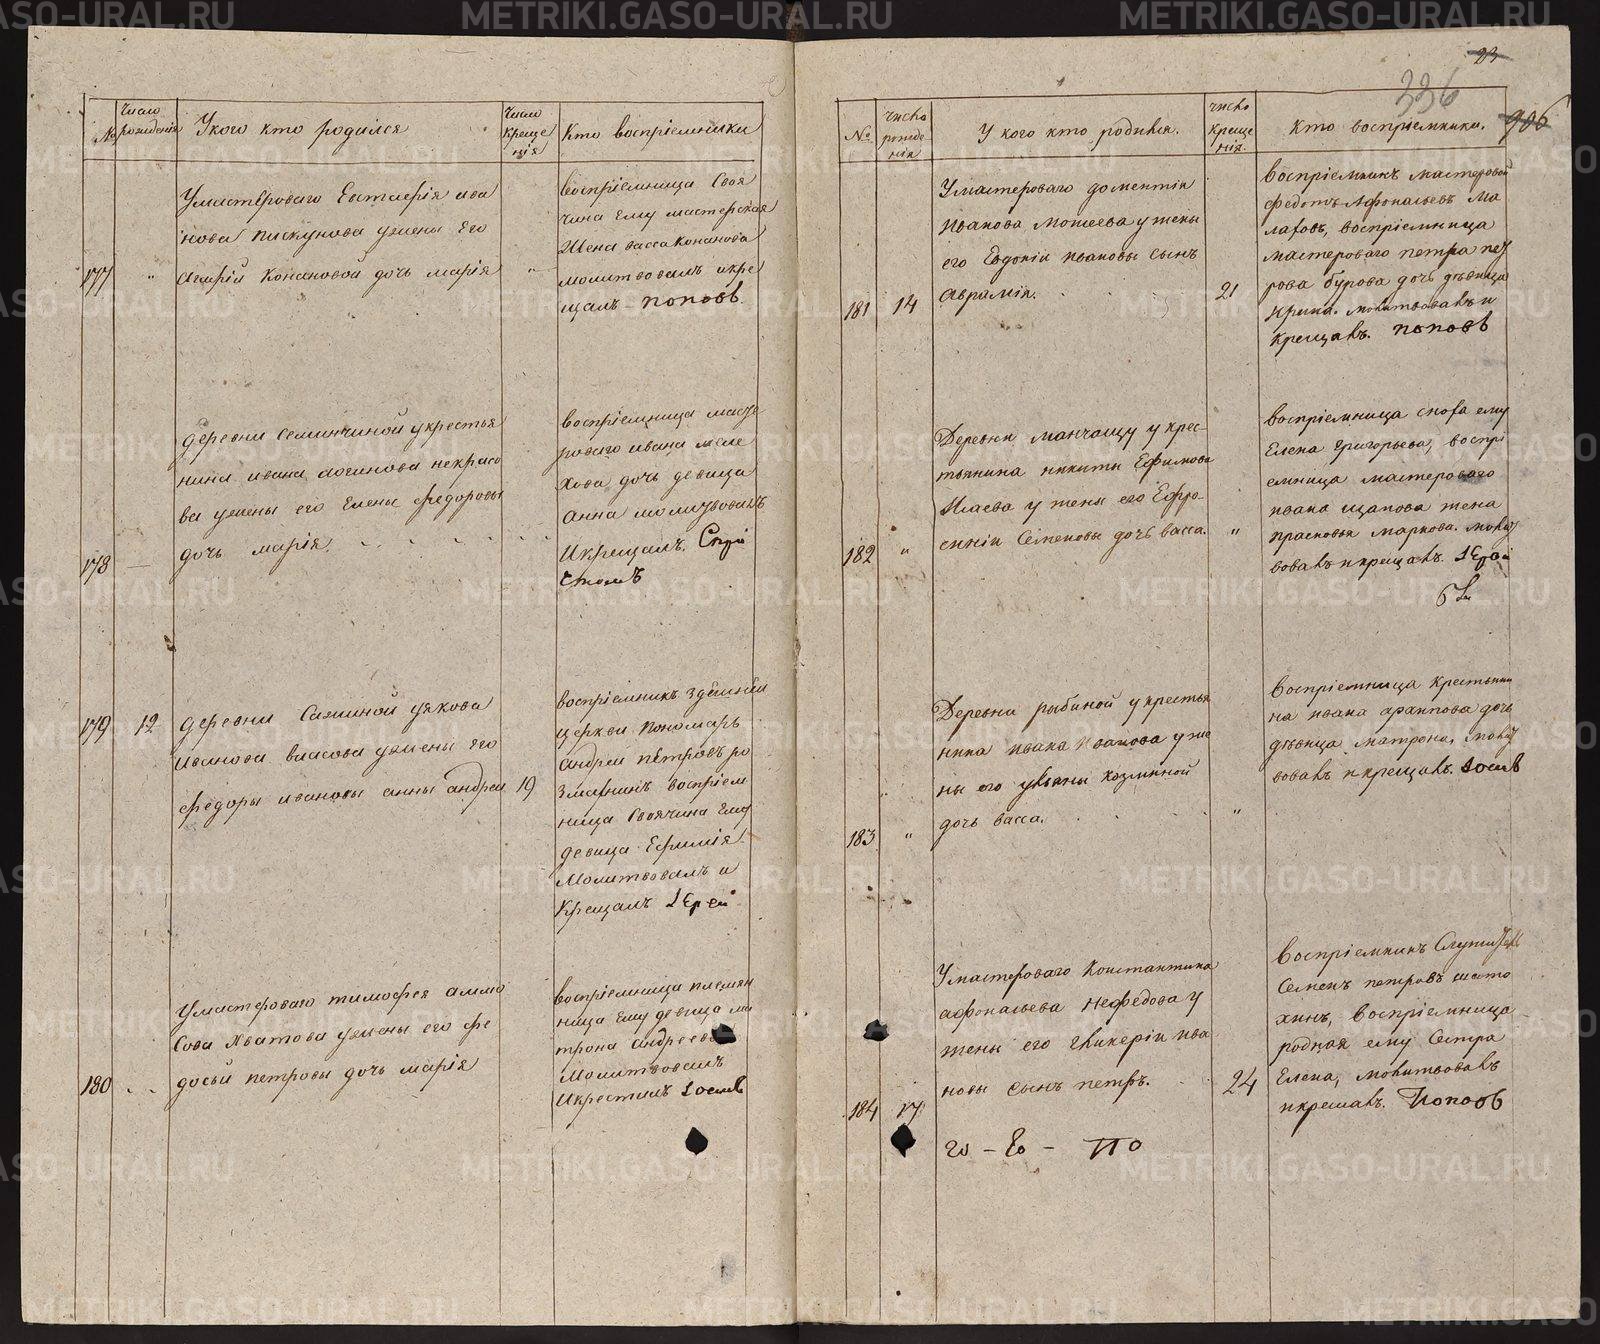 №
Число рожденія
У кого кто родился
Число
креще
нія
Кто воспріемники
177
"
У мастероваго Евстафія ива
нова пискунова у жены его
Конановой дочь марія
"
воспріемница своя
чина ему мастерская
жена васса Конанова
молитвовалъ и кре
щалъ Поповъ
178
деревни семинчиной у крестья
нина ивана логинова некрасо
ва у жены его Елены Федоровы
дочь марія.
воспріемница масте
роваго ивана меле
хова дочь девица
Анна молитвовалъ
и крещалъ.
179
12
деревни Сажиной у якова
иванова власова у жены его
федоры ивановы сынъ андрей
19
воспріемникъ здешней
церкви пономарь
андрей петровъ ро
воспріем
ница своячина ему
девица Ефимія
молитвовалъ и
крещалъ Іерей
180
У мастероваго тимофея аммо
сова хватова у жены его фе
досьи петровы дочь марія
воспріемница племян
ница ему девица ма
трона андреева
молитвовалъ
и крестилъ
23
336
906
№
число
рожде
нія
У кого кто родился.
число
креще
нія.
кто воспріемники.
181
14
У мастероваго доментія
иванова моисеева у жены
его Евдокіи ивановы сынъ
Аврамій.
21
воспріемникъ мастеровой
федотъ Афонасьевъ ма
лаховъ, воспріемница
мастероваго петра пет
рова бурова дочь девица
Ирина. молитвовалъ и
крещалъ. Поповъ
182
"
Деревни манчашу у крес-
тьянина никиты Ефимова
Исаева у жены его Ефро-
синіи Семеновы дочь васса.
"
воспріемница сноха ему
Елена Григорьева, воспрі
емница мастероваго
ивана щапова жена
прасковья маркова. молит
вовалъ и крещалъ. Іерей
183
"
Деревни рыбиной у крестья
нина ивана иванова у же
ны его ульяны козминой
дочь васса.
"
Воспріемница крестьяни
на ивана архипова дочь
девица матрона, молит
вовалъ и крещалъ.
184
17
У мастероваго Константина
афонасьева нефедова у
жены его гликеріи ива
новы сынъ петръ.
24
воспріемникъ Служитель
Семенъ петровъ шато
хинъ, воспріемница
родная ему Сестра
Елена, молитвовалъ
и крещалъ. Поповъ
го - Ео - по
METRIKI.GASO-URAL.RU